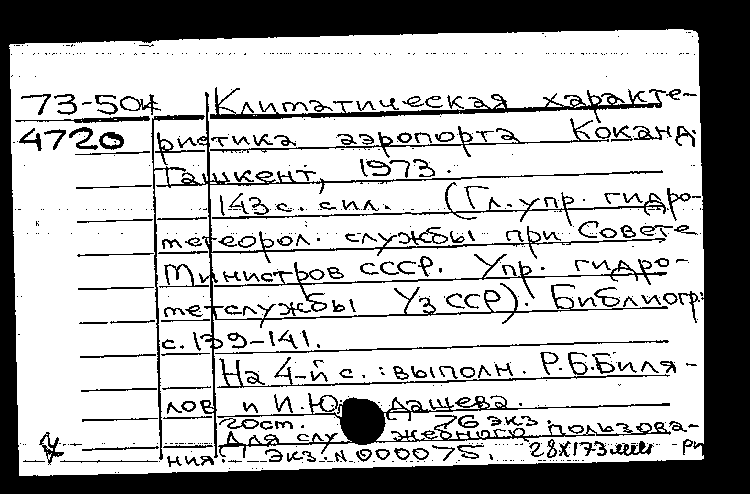 73-504 Климатическая характе-
4720 ристика аэропорта Коканд.
Ташкент, 1973.
143 с. с ил. (Гл. упр. гидро-
метеорол. службы при Совете
Министров СССР. Упр. гидро-
метслужбы УзССР). Библиогр:
с. 139-141.
На 4-й с.: выполн. Р.Б.Биля-
лов и И.Ю. дашева.
гост. 76 экз.
Для служебного пользова-
ния. Экз. N 000075. 28X173 мм РП